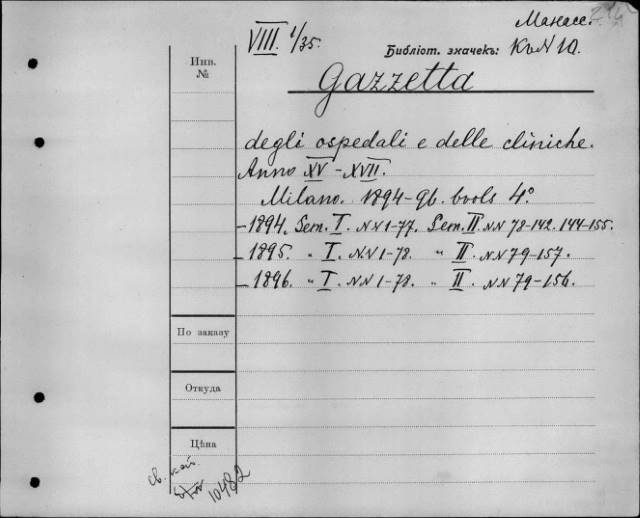 Манасс.
VIII 1/35.
Библіот. значекъ: КвN 10.
Инв.
№
Gazzetta
degli ospedali e delle cliniche.
Anno XV - XVII.
Milano. 1894-96. 4°.
- 1894. Sem. I. NN 1-77. Sem. II. NN 78-142. 144-155.
- 1895. „ I. NN 1-78. „ II. NN 79-157.
- 1896. „ I. NN 1-78. „ II. NN 79-156.
По заказу
Откуда
Цѣна
св. кай.
10482